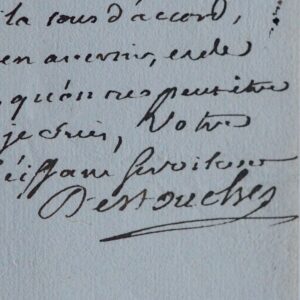 la sous d'accord,
en avenir, e de
qu'on ne peut être
je suis, Votre
obéissant Serviteur
Destouches